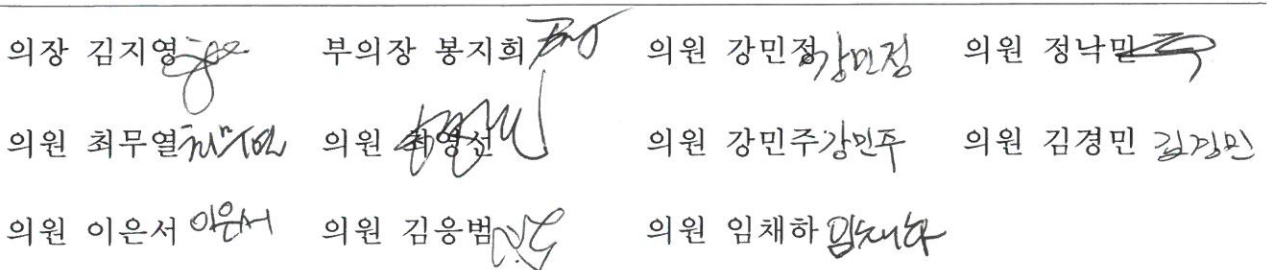 의장 김지영 부의장 봉지희 의원 강민정 강민정 의원 정낙민
의원 최무열 의원 최영선 의원 강민주 강민주 의원 김경민 김경민
의원 이은서 이은서 의원 김응범 의원 임채하 임채하